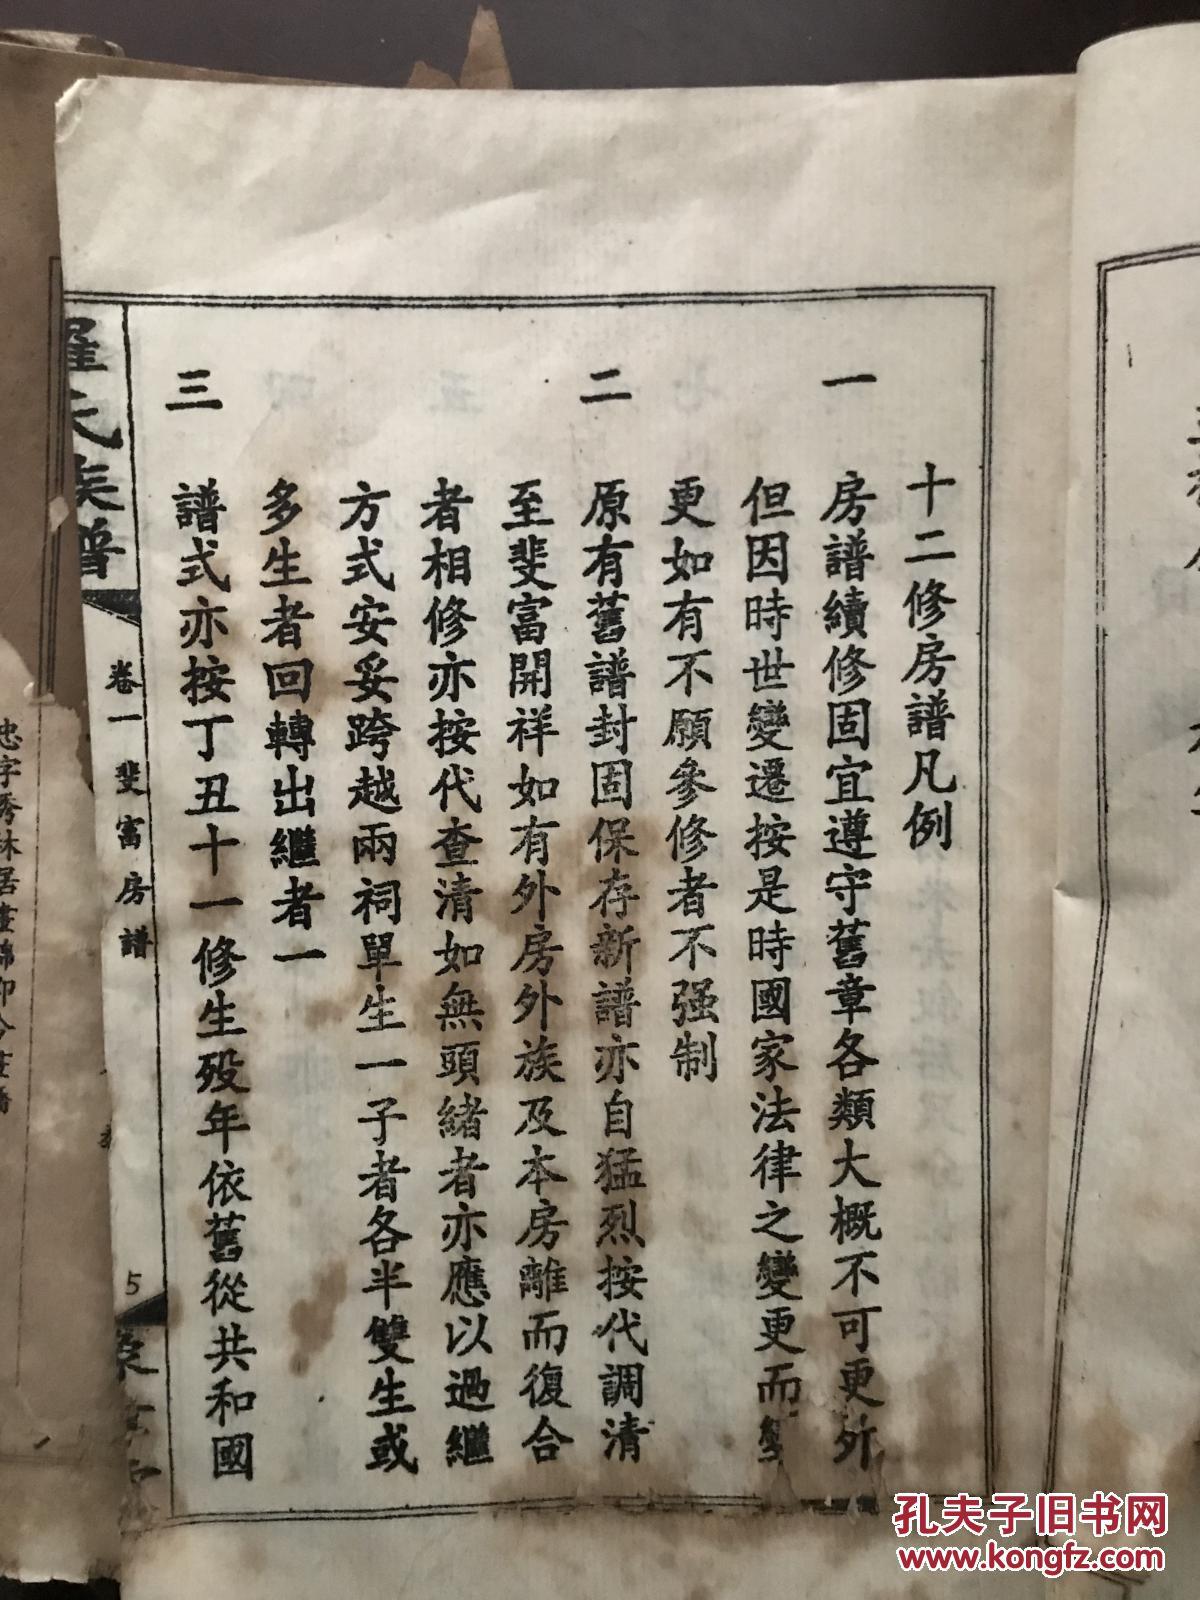 十二修房譜凡例
一 房譜續修固宜遵守舊章各類大概不可更外
但因時世變遷按是時國家法律之變更而變
更如有不願參修者不强制
二 原有舊譜封固保存新譜亦自猛烈按代調清
至斐富開祥如有外房外族及本房離而復合
者相修亦按代查清如無頭緒者亦應以過繼
方式安妥跨越兩祠單生一子者各半雙生或
多生者回轉出繼者一
三 譜式亦按丁丑十一修生殁年依舊從共和國
羅氏族譜
卷一 斐富房譜
5
孔夫子旧书网
www.kongfz.com